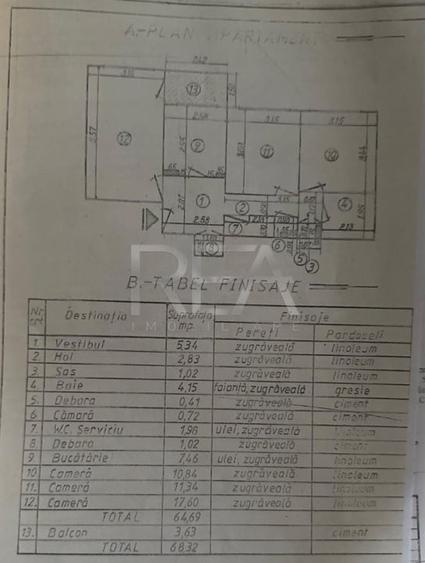 A.-PLAN APARTAMENT
13
12
9
11
10
1
2
4
7
8
6
5
3
2.58
3.15
3.15
2.58
2.13
REA
IMOBILIARE
B.-TABEL FINISAJE
Nr. Destinaţia Suprafaţa mp. Finisaje
Pereţi Pardoseli
1. Vestibul 5,34 zugrăveală linoleum
2. Hol 2,83 zugrăveală linoleum
3. Sas 1,02 zugrăveală linoleum
4. Baie 4,15 faianţă, zugrăveală gresie
5. Debara 0,41 zugrăveală ciment
6. Cămară 0,72 zugrăveală ciment
7. W.C. Serviciu 1,96 ulei, zugrăveală linoleum
8. Debara 1,02 zugrăveală
9. Bucătărie 7,46 ulei, zugrăveală linoleum
10. Cameră 10,84 zugrăveală linoleum
11. Cameră 11,34 zugrăveală linoleum
12. Cameră 17,60 zugrăveală linoleum
TOTAL 64,69
13. Balcon 3,63 ciment
TOTAL 68,32